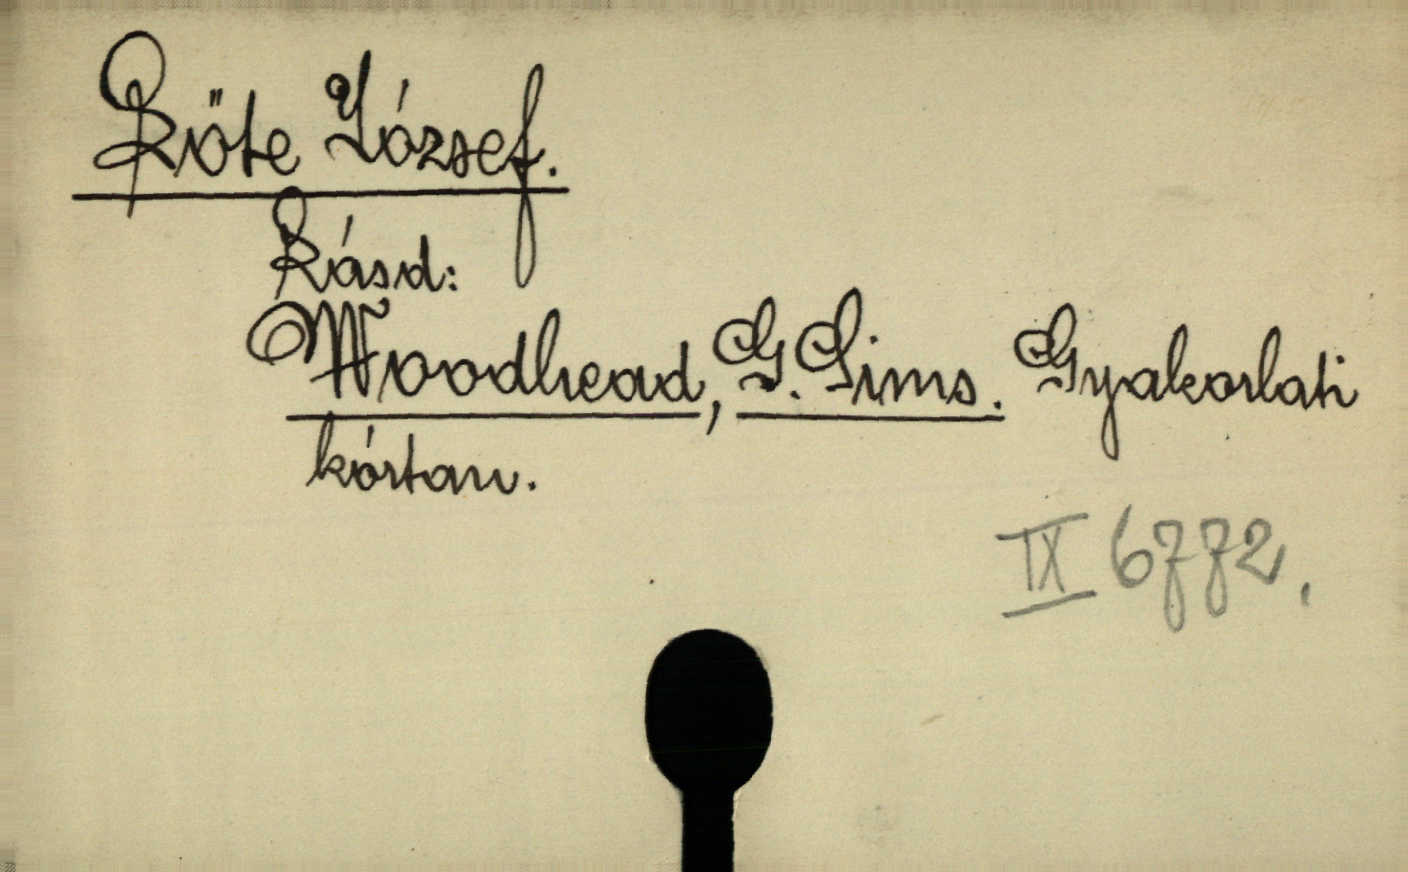 Lőte József.
Lásd:
Woodhead, G. Sims. Gyakorlati
kórtan.
IX 6772.